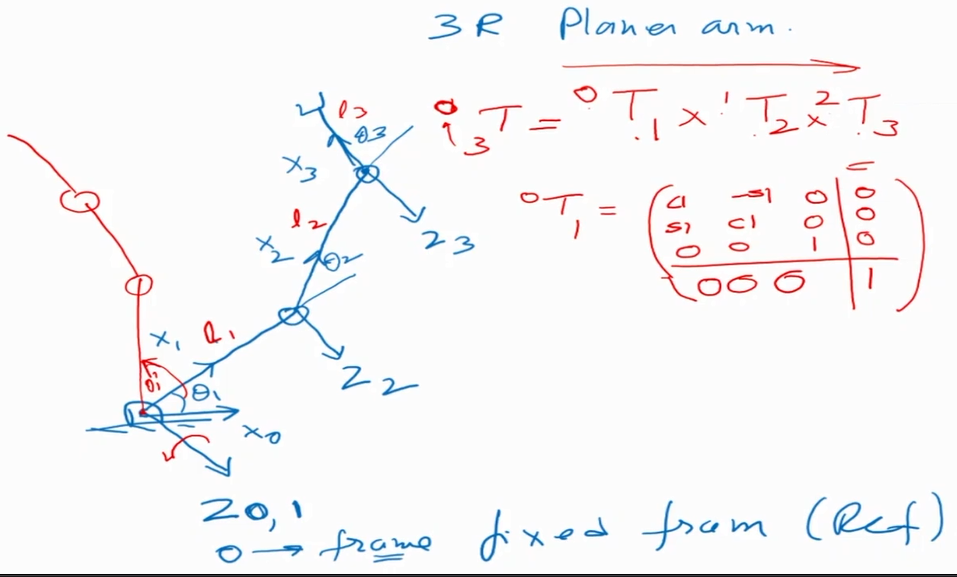 3R Planer arm.
⁰₃T = ⁰T₁ × ¹T₂ × ²T₃
⁰T₁ =
c1 -s1 0 0
s1 c1 0 0
0 0 1 0
0 0 0 1
l3
θ3
x3
z3
l2
x2
θ2
z2
x1
l1
θ1
θ1
x0
z0,1
0 → frame fixed fram (Ref)